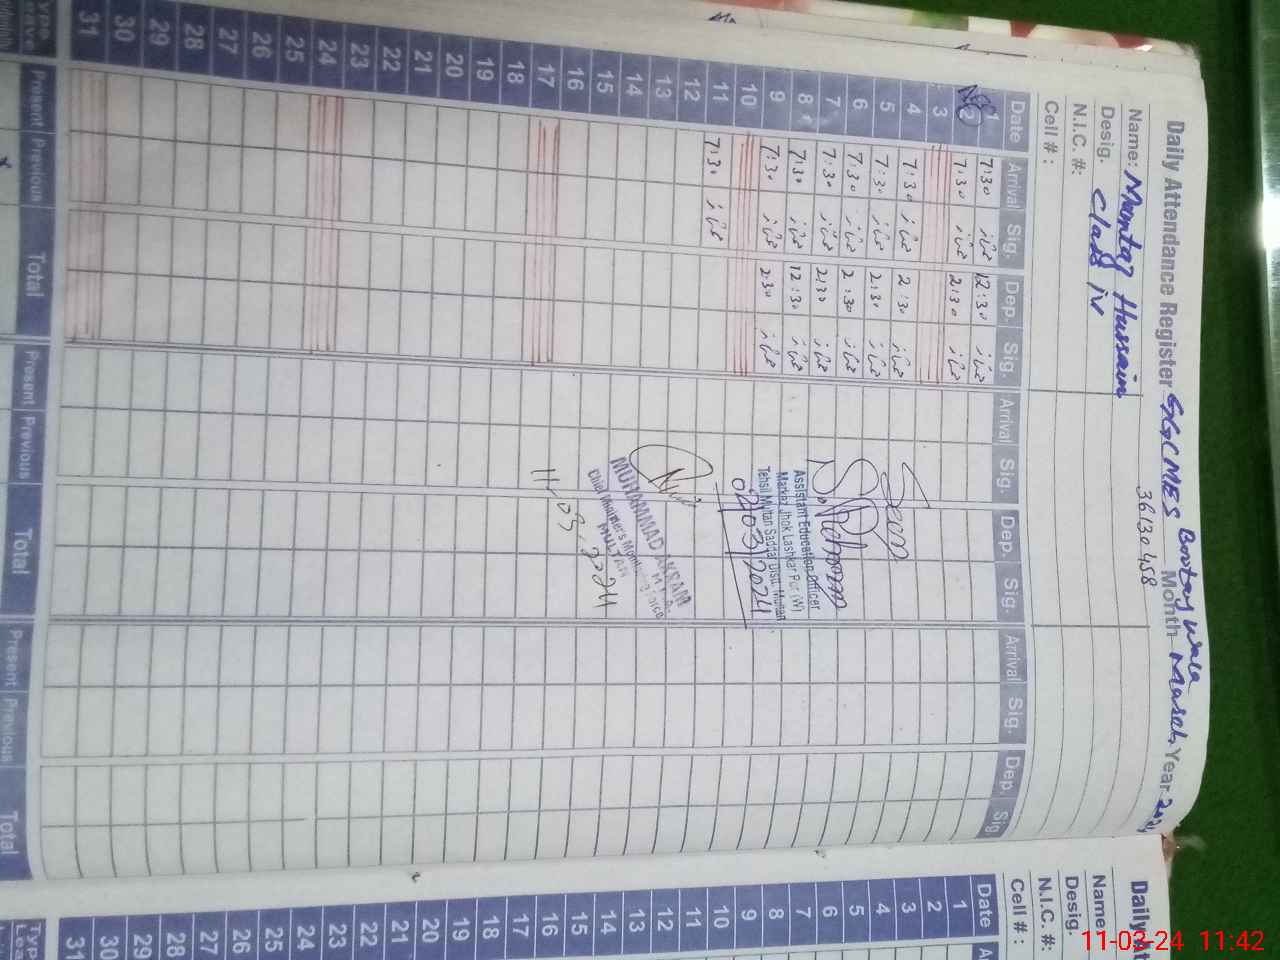 Daily Attendance Register GGCMES Bootay wala Month March Year 2024
36130458
Name: Mumtaz Hussain
Desig. Class iv
N.I.C. #:
Cell # :
Date Arrival Sig. Dep. Sig. Arrival Sig. Dep. Sig. Arrival Sig. Dep. Sig.
1 7:30 12:30
2 7:30 2:30
3
4 7:30 2:30
5 7:30 2:30
6 7:30 2:30
7 7:30 2:30
8 7:30 12:30
9 7:30 2:30
10
11 7:30
12
13
14
15
16
17
18
19
20
21
22
23
24
25
26
27
28
29
30
31
Present Previous Total Present Previous Total Present Previous Total
Assistant Education Officer
Markaz Jhok Lashkar Pur (W)
Tehsil Multan Saddar Distt. Multan
02/03/2024
MUHAMMAD AKRAM
M.E.A.
Chief Minister's Monitoring Force
MULTAN
11-03-2024
Name
Desig.
N.I.C. #:
Cell # :
Date
1
2
3
4
5
6
7
8
9
10
11
12
13
14
15
16
17
18
19
20
21
22
23
24
25
26
27
28
29
30
31
11-03-24 11:42